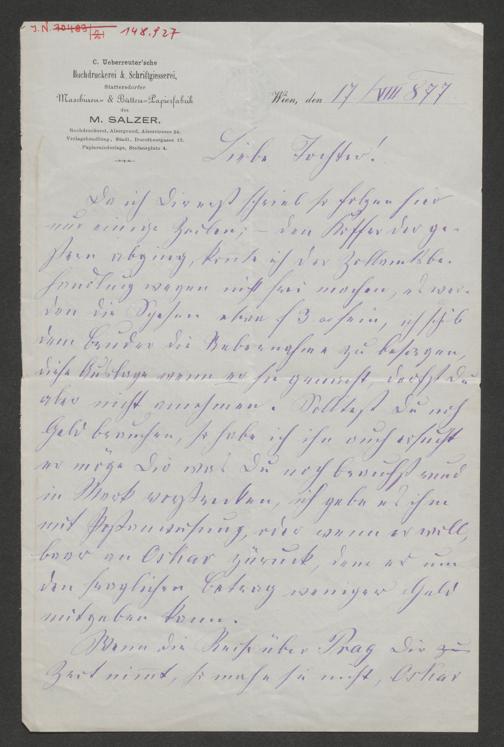 J.N. 70483/2 148.927
C. Ueberreuter'sche
Buchdruckerei & Schriftgiesserei,
Stattersdorfer
Maschinen- & Bütten-Papierfabrik
des
M. SALZER.
Buchdruckerei, Alsergrund, Alserstrasse 24.
Verlagshandlung, Stadt, Dorotheergasse 12.
Papierniederlage, Stefansplatz 4.
Wien, den 17/VIII 877
Liebe Tochter!
Da ich Dir erst schrieb so folgen hier
nur einige Zeilen; – den Koffer der ge-
stern abging, konte ich der Zollamtsbe-
handlung wegen nicht frei machen, es wer-
den die Spesen etwa f 3 sein, ich schrieb
dem Bruder die Uebernahme zu besorgen,
diese Auslage wenn er sie gemacht darfst Du
aber nicht annehmen. Solltest Du noch
Geld brauchen, so habe ich ihn auch ersucht
er möge Dir was Du noch brauchst rund
in Mark vorstrecken, ich gebe es ihm
mit Postanweisung, oder wenn er will,
baar an Oskar zurück, dem er um
den fraglichen Betrag weniger Geld
mitgeben kann.
Wenn die Reise über Prag Dir zu
Zeit nimmt, so mache sie nicht, Oskar